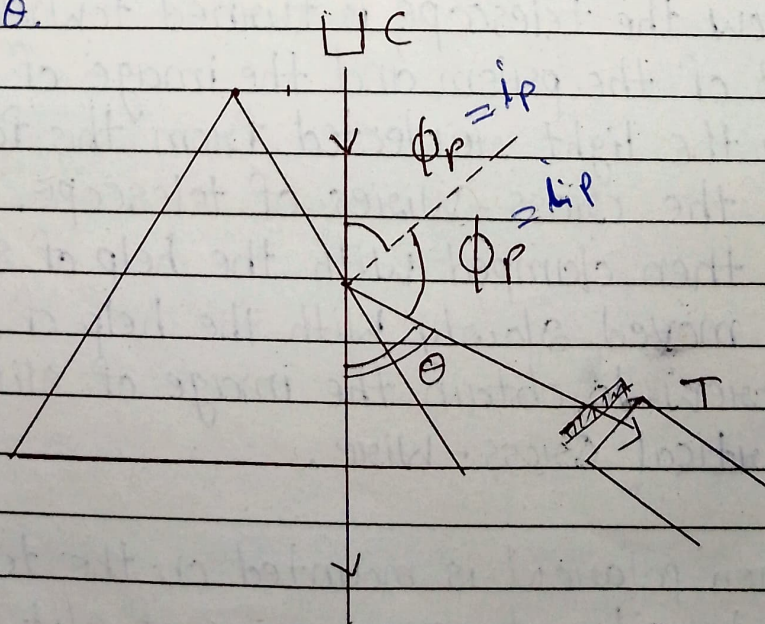 θ.
C
ϕp = ip
ϕp = ip
θ
T